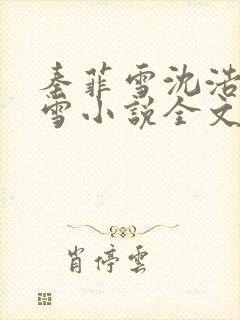 秦菲雪沈浩
雪小説全文
肖停雲